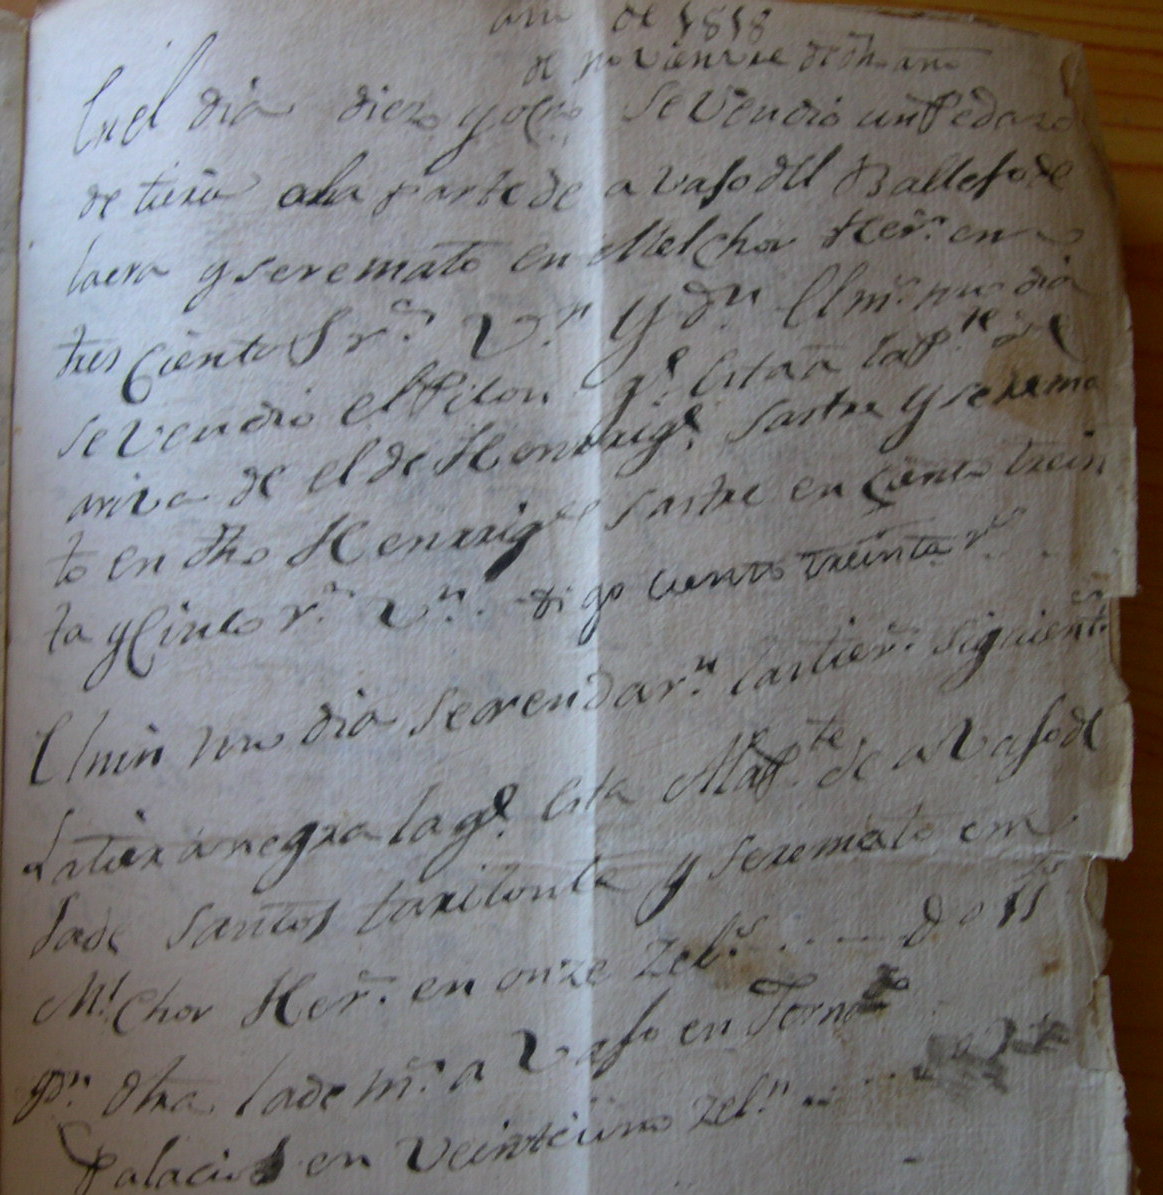 año de 1818
de novienvre de dho año
En el dia diez y ocho se vendio un Pedazo
de tiera ala parte de avaso dell Balleso de
la era y se remato en Melchor Her.n en
tres Cientos r.s V.n Y d.n El m.o dia
se vendio el Piton q.e Estaa la P.te de
ariva de el de Henrriq.e sastre y se rema
to en dho Henrrique sastre en Ciento trein
ta y Cinco r.s V.n digo ciento treinta r.s
El mismo dia se arendar.n las tier.s siguient.s
La tiera negra la q.e Esta A la P.te de avaso de
la de Santos y se remato en
M.l Chor Her.n en onze zel.s - - - - D o 11
Otra la de m.s avaso en
Palacios en veinte i uno zel.n